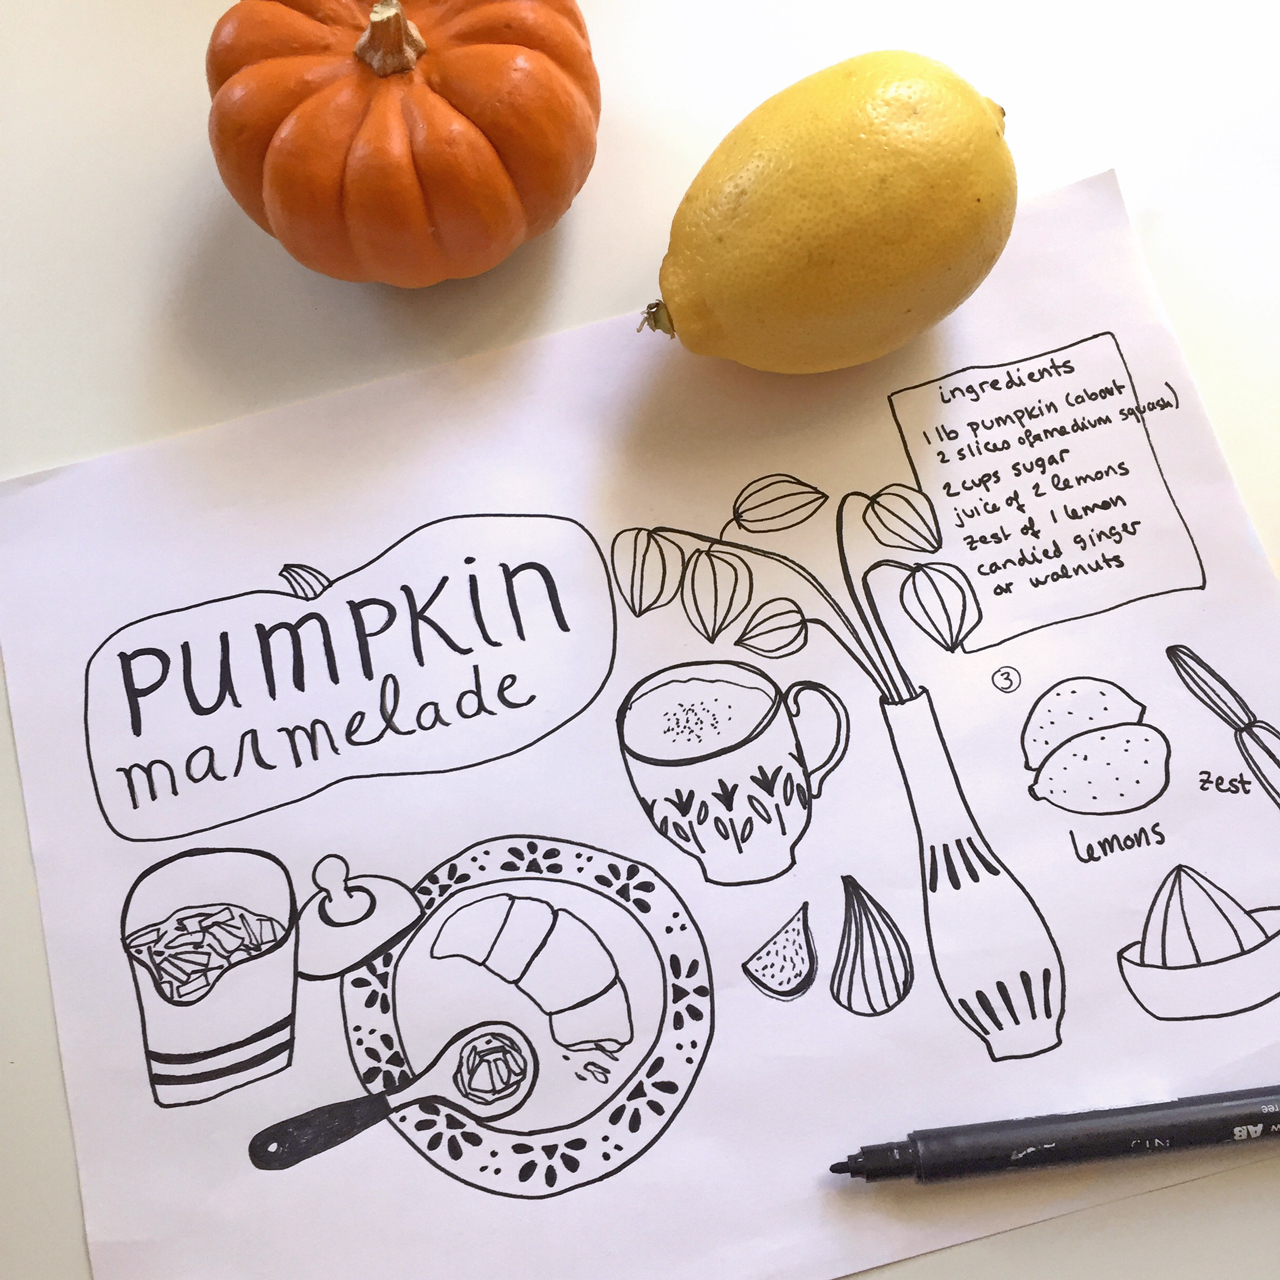 ingredients
1 lb pumpkin (about
2 slices of a medium squash)
2 cups sugar
juice of 2 lemons
zest of 1 lemon
candied ginger
or walnuts
PUMPKin
marmelade
3
zest
lemons
AB